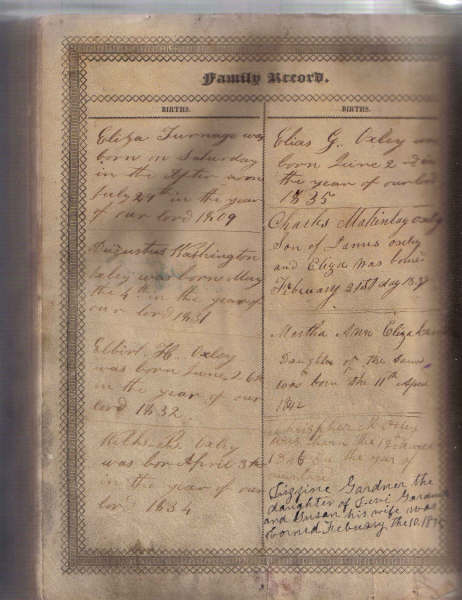 Family Record.
BIRTHS.
Eliza Turnage was
born on Saturday
in the After noon
July 29th in the year
of our lord 1809
Augustus Washington
Oxley was born May
the 4th in the year of
our lord 1831
Elbert H. Oxley
was born June 26th
in the year of our
lord 1832
Oxley
was born April 3th
in the year of our
lord 1834
BIRTHS.
Elias G. Oxley was
born June 2
the year of our lord
1835
Charles McKinlay Oxly
Son of Oxly
and Eliza was born
February 21st day
Martha Ann Eliza
Daughter of the Same
was born the 11th April
1842
was born the
in the year of
Lizzine Gardner the
daughter of Levi Gardner
and Susan his wife was
borned Febuary the 10